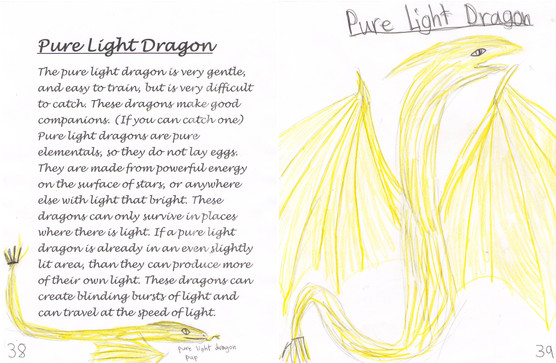 Pure Light Dragon
The pure light dragon is very gentle,
and easy to train, but is very difficult
to catch. These dragons make good
companions. (If you can catch one)
Pure light dragons are pure
elementals, so they do not lay eggs.
They are made from powerful energy
on the surface of stars, or anywhere
else with light that bright. These
dragons can only survive in places
where there is light. If a pure light
dragon is already in an even slightly
lit area, than they can produce more
of their own light. These dragons can
create blinding bursts of light and
can travel at the speed of light.
pure light dragon
pup
38
Pure Light Dragon
39